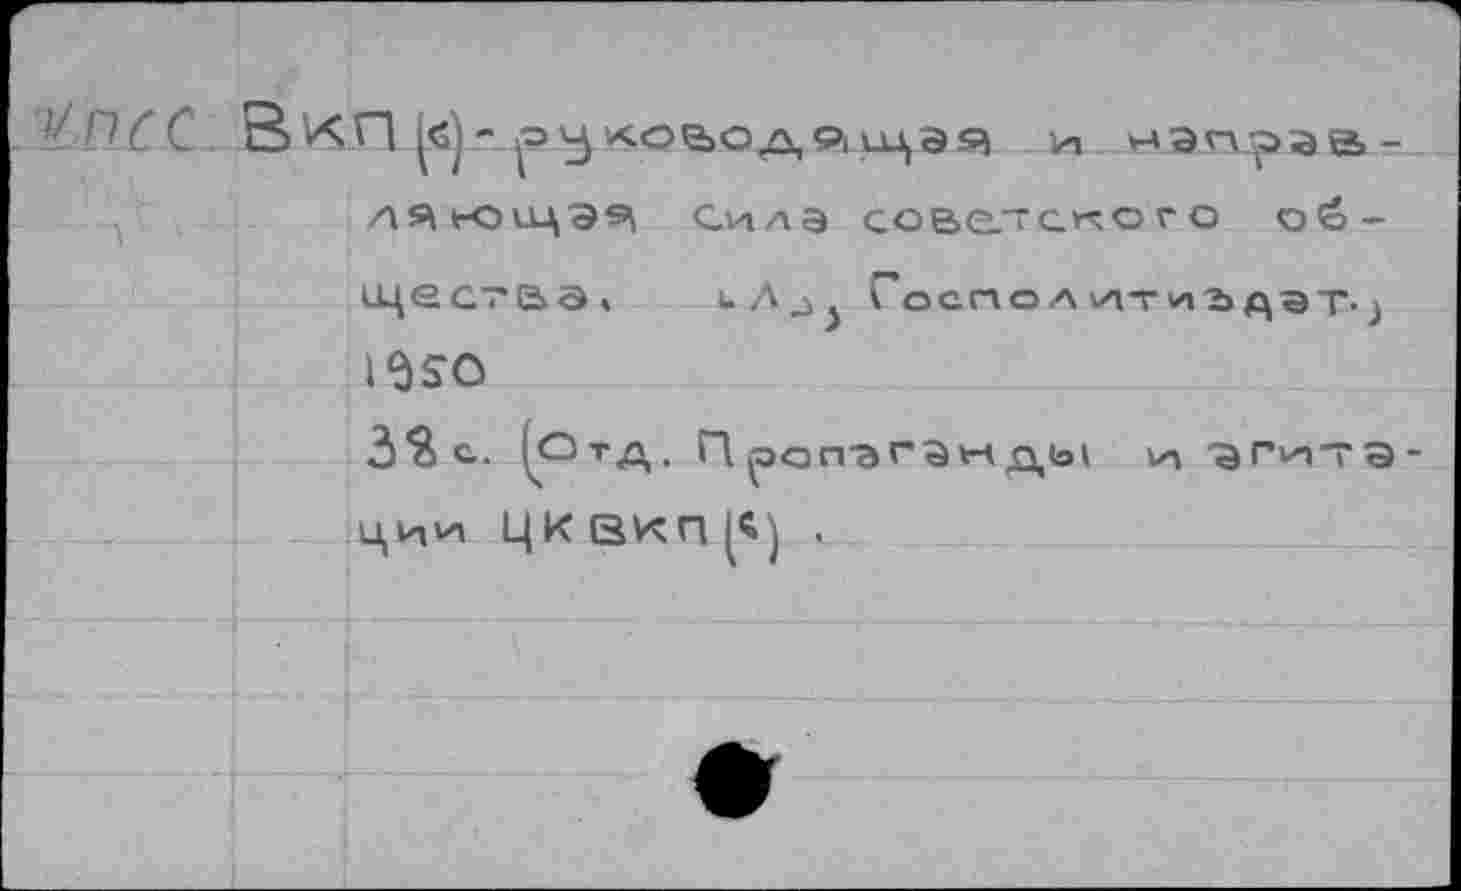 КПСС ВКП(б) - руководящая и направ-
ляющая сила советского об-
щества. М., Госполитиздат.,
1950
38 с. (Отд. Пропаганды и агита-
ции ЦК ВКП(б).